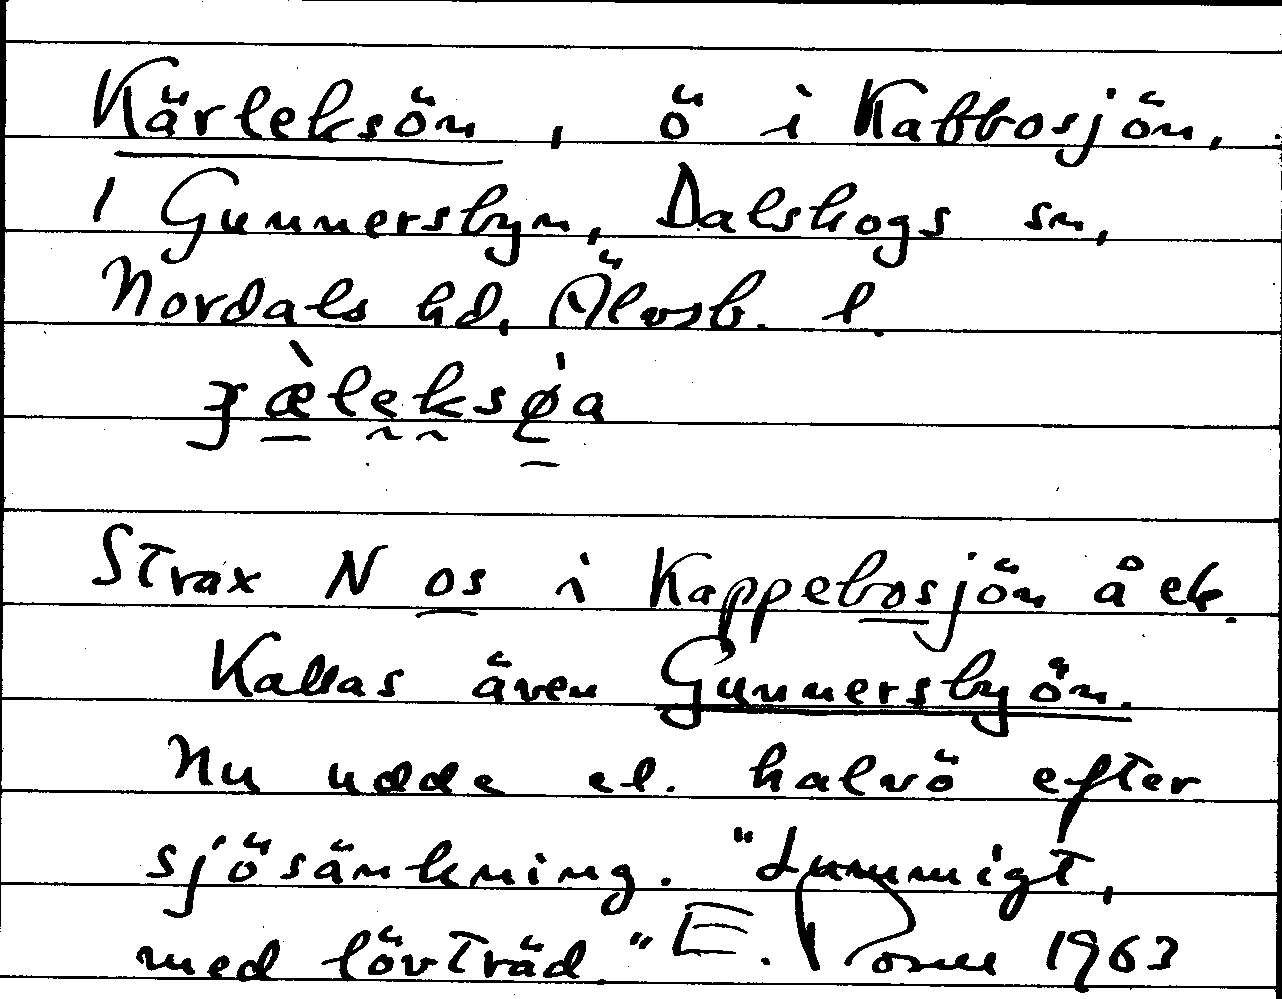 Kärleksön, ö i Kabbosjön,
i Gunnersbyn, Dalskogs sn,
Nordals hd, Älvsb. l.
Strax N os i Kappebosjön å ek.
Kallas även Gunnersbyön.
Nu udde el. halvö efter
sjösänkning. "Lummigt,
med lövträd." E. 1963